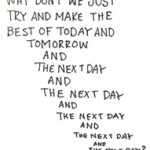 WHY DON'T WE JUST
TRY AND MAKE THE
BEST OF TODAY AND
TOMORROW
AND
THE NEXT DAY
AND
THE NEXT DAY
AND
THE NEXT DAY
AND
THE NEXT DAY
AND THE NEXT DAY?